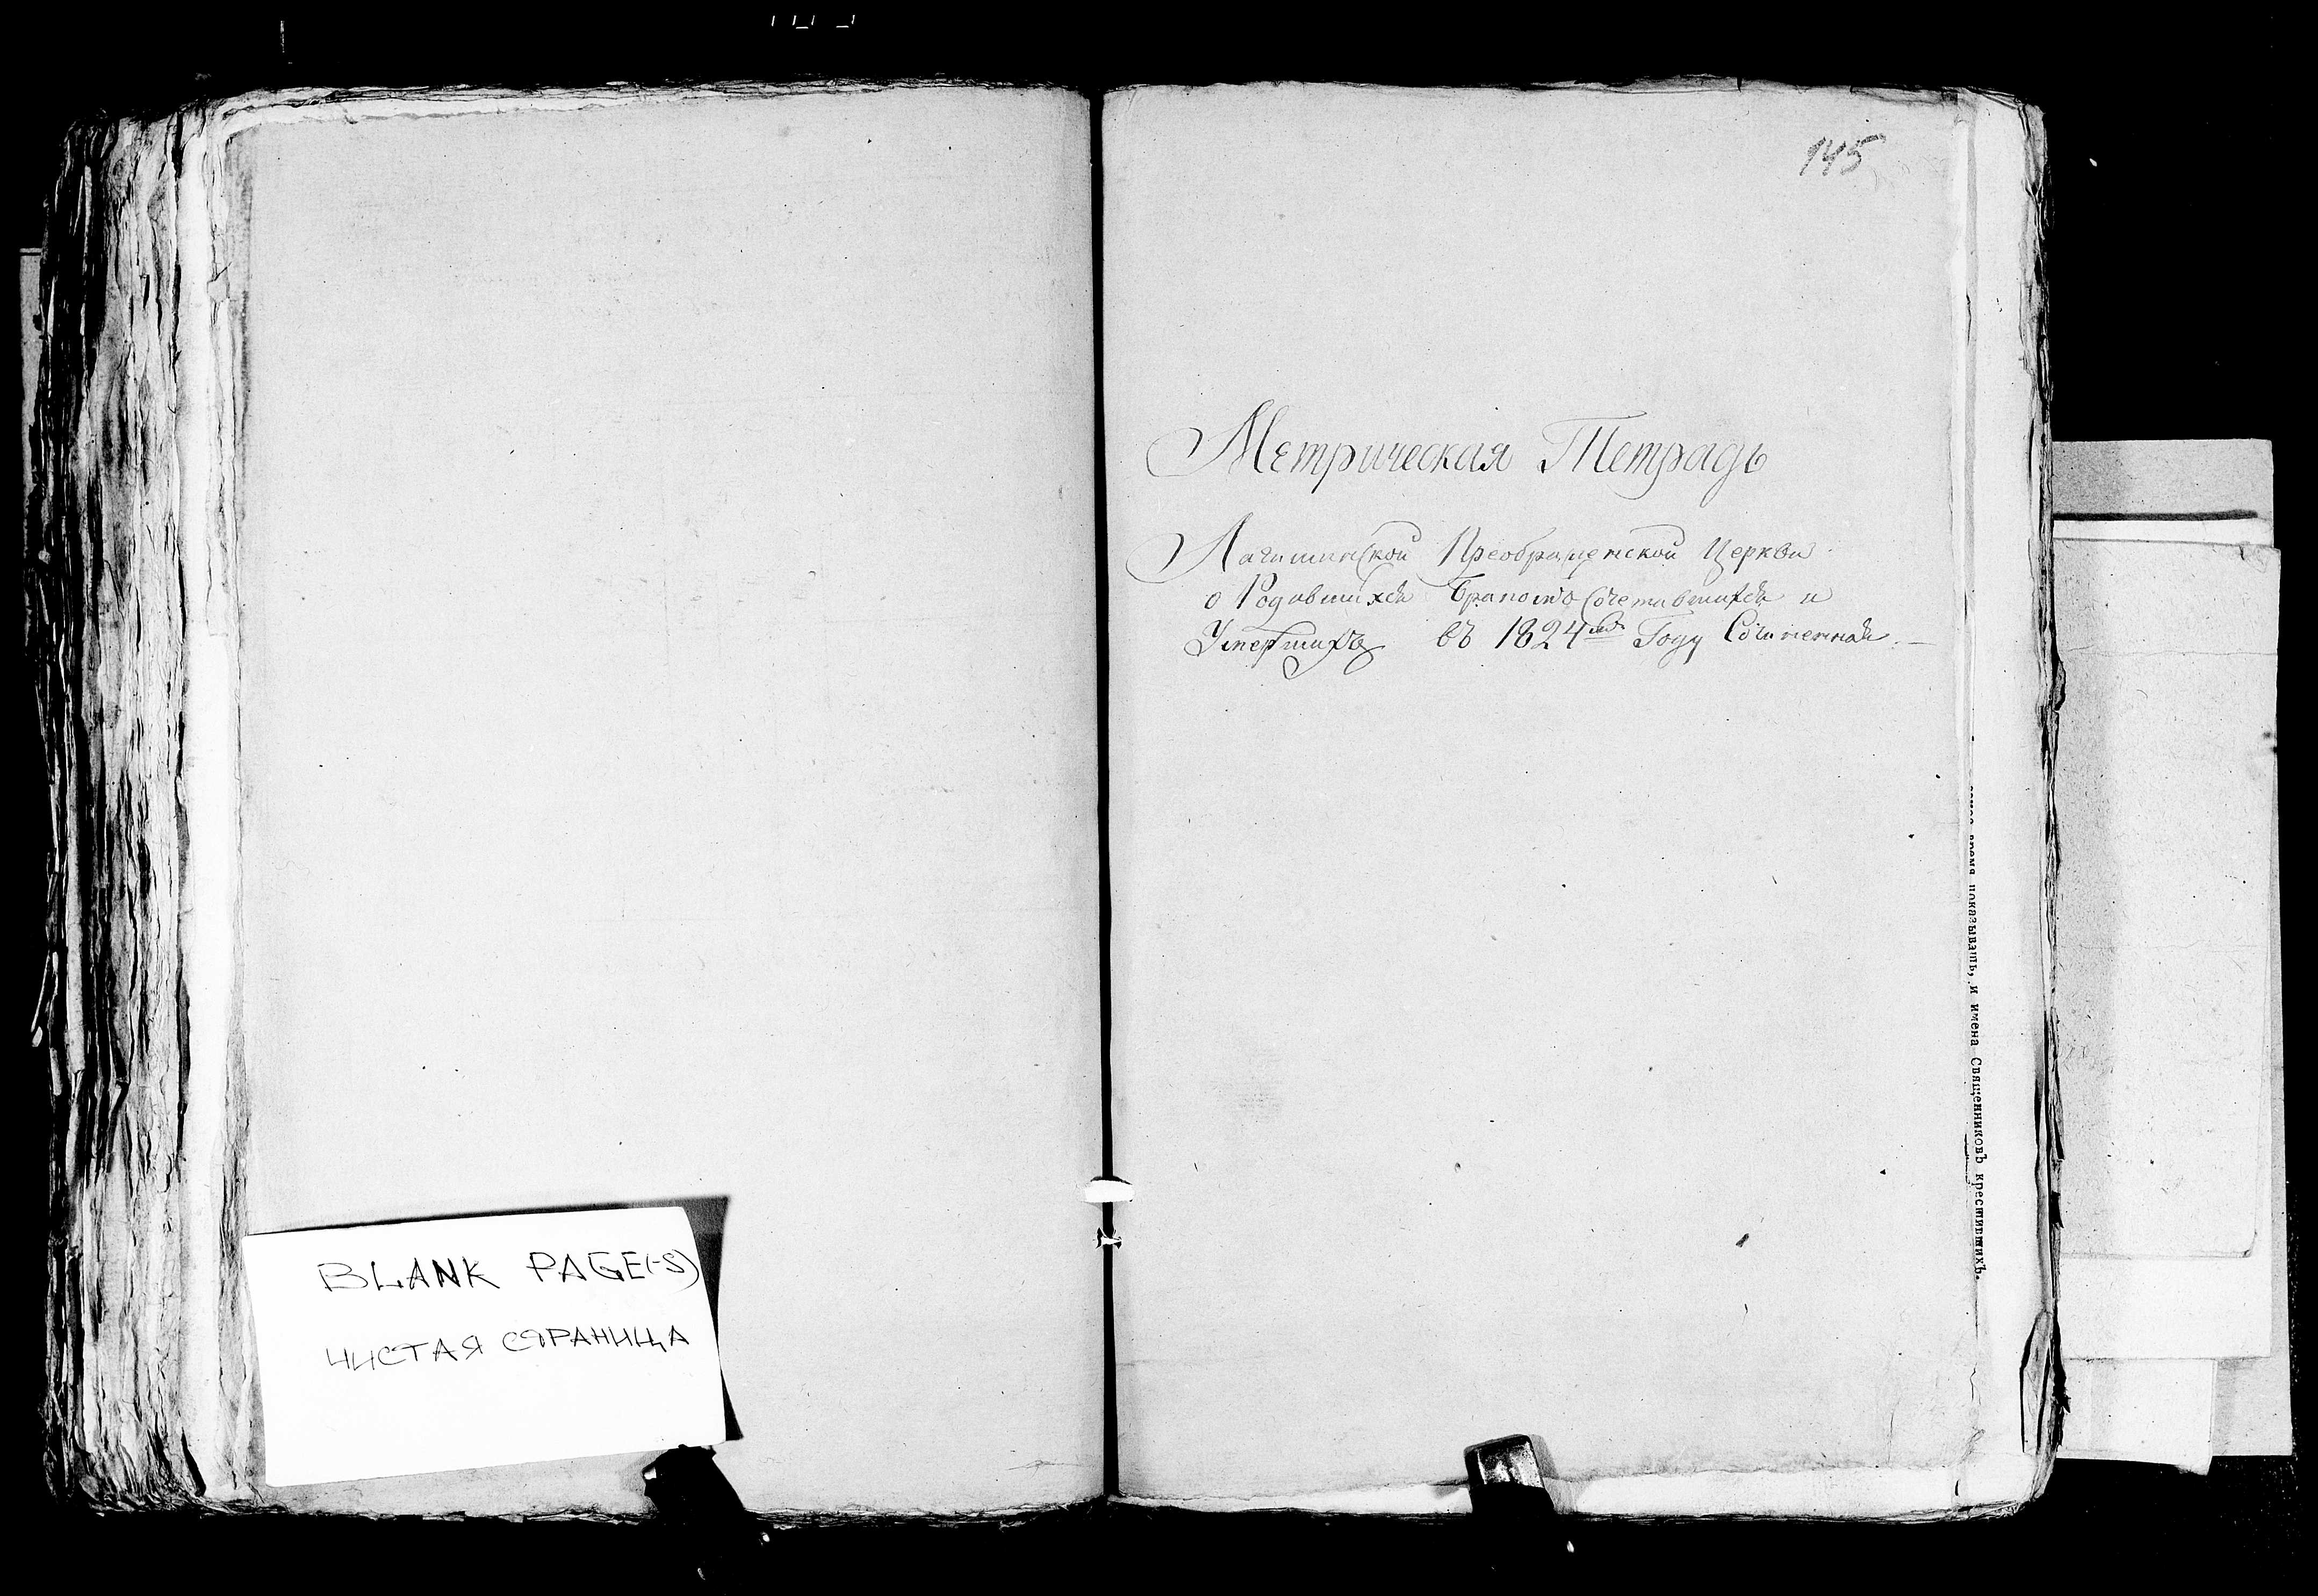 BLANK PAGE(-S)
ЧИСТАЯ СТРАНИЦА
145
Метрическая Тетрадь
Логишинской Преображенской Церкви
о Родившихся Бракомъ Сочетавшихся и
Умершихъ въ 1824мъ Году Сочиненная. —
время показывать, и имена Священниковъ крестившихъ.